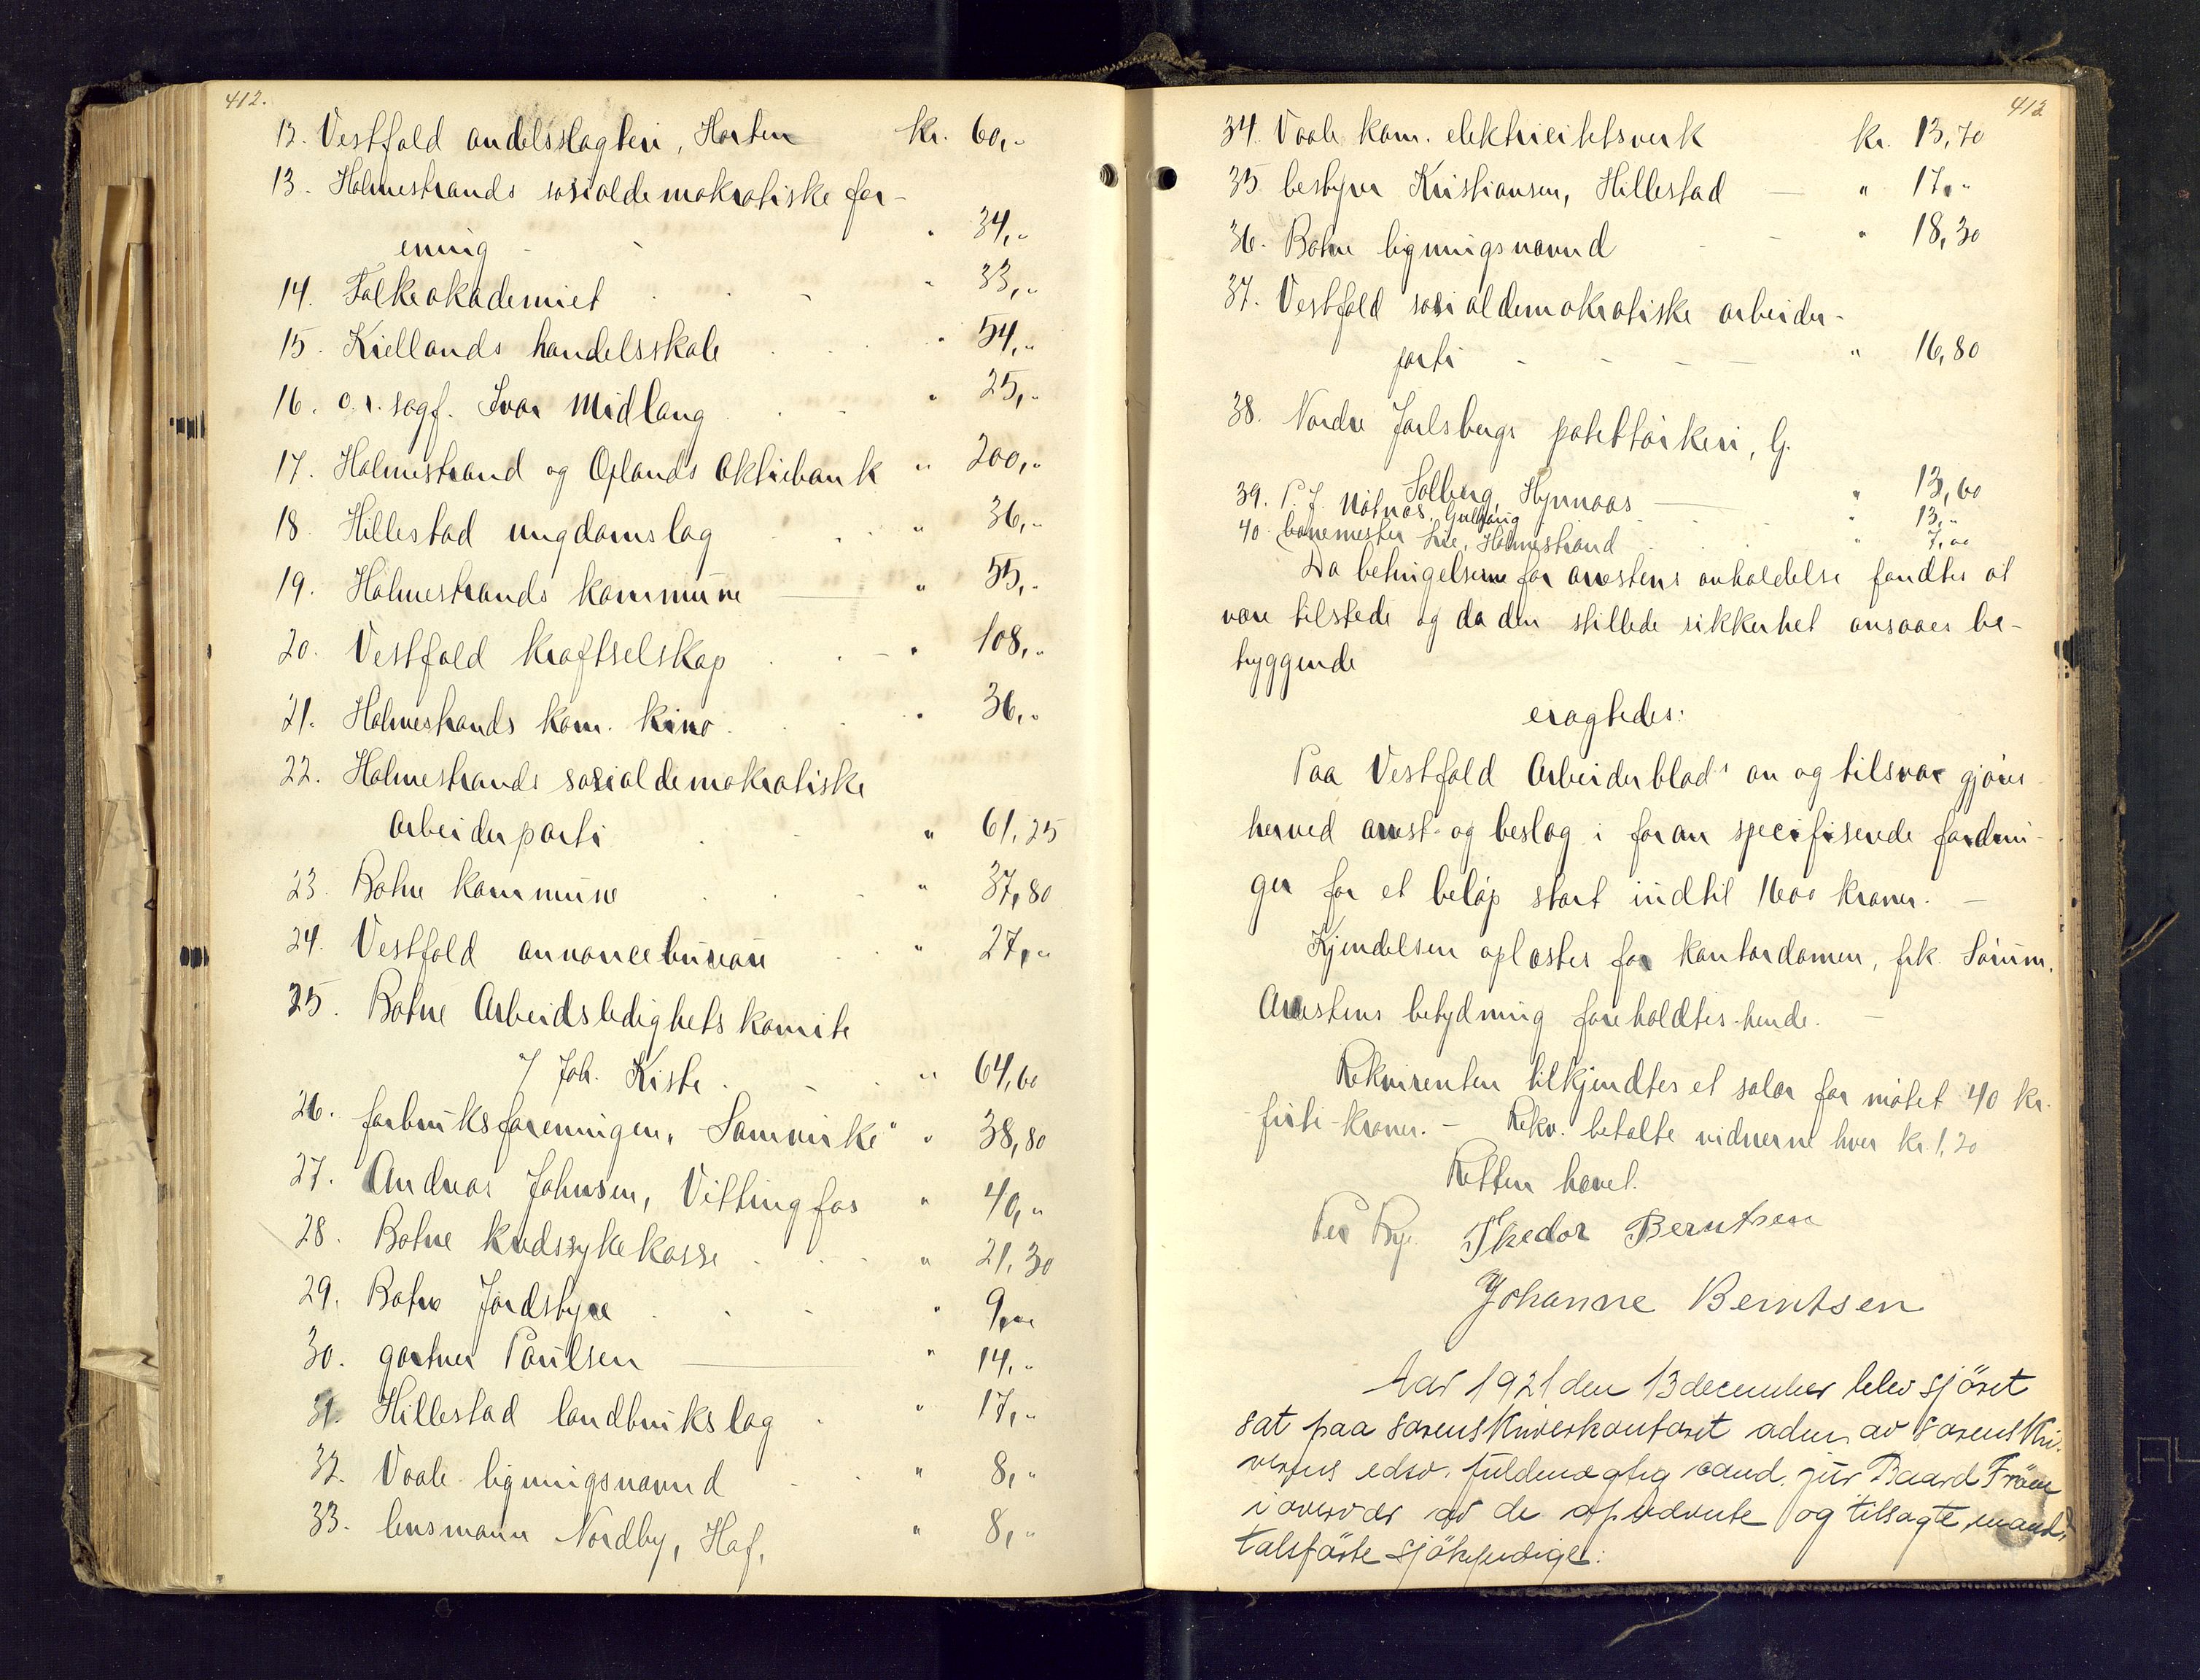 412.
12. Vestfold andelsslagteri, Horten kr. 60,-
13. Holmestrands sosialdemokratiske for-
ening " 34,-
14. Folkeakademiet " 33,-
15. Kiellands handelsskole " 54,-
16. o.r.sagf. Ivar Midlang " 25,-
17. Holmestrand og Oplands Aktiebank " 200,-
18 Hillestad ungdomslag " 36,-
19. Holmestrands kommune " 55,-
20. Vestfold Kraftselskap " 108,-
21. Holmestrands kom. kino " 36,-
22. Holmestrands sosialdemokratiske
arbeiderparti " 61,25
23. Botne kommune " 37,80
24. Vestfold annoncebureau " 27,-
25. Botne Arbeidsledighetskomite
v/ Joh. Kiste " 64,60
26. forbruksforeningen "Samvirke" " 38,80
27. Andreas Johnsen, Vittingfos " 40,-
28. Botne kredssykekasse " 21,30
29. Botne Jordstyre " 9,00
30. gartner Paulsen " 14,-
31. Hillestad landbrukslag " 17,-
32. Vaale ligningsnævnd " 8,-
33. lensmann Nordby, Hof, " 8,-
413
34. Vaale kom. elektricitetsverk kr. 13,70
35 bestyrer Kristiansen, Hillestad " 17,-
36. Botne ligningsnævnd " 18,30
37. Vestfold sosialdemokratiske arbeider-
parti " 16,80
38. Nordre Jarlsbergs potettørkeri, G.
Solberg, Hynnaas " 13,60
39. P. J. Nøtnes, Gullhaug " 13,-
40. banemester Lie, Holmestrand " 7,00
Da betingelserne for arrestens anholdelse fandtes at
være tilstede og da den stillede sikkerhet ansaaes be-
tryggende
eragtedes:
Paa Vestfold Arbeiderblads an og tilsvar gjøres
herved arrest og beslag i foran specifiserede fordrin-
ger for et beløp stort indtil 1600 kroner.
Kjendelsen oplæstes for kontordamen, frk. Sørum.
Arrestens betydning foreholdtes hende.
Rekvirenten tilkjendtes et salær for møtet 40 kr.
førti kroner. - Rekv. betalte vidnerne hver kr. 1,20
Retten hævet.
Per Rye. Thedor Berntsen
Johanne Berntsen
Aar 1921 den 13 december blev sjöret
sat paa sorenskriverkontoret adm. av sorenskri-
verens edsv. fuldmægtig cand. jur. Baard From
i overvær av de opnævnte og tilsagte, mand-
talsförte sjökyndige: